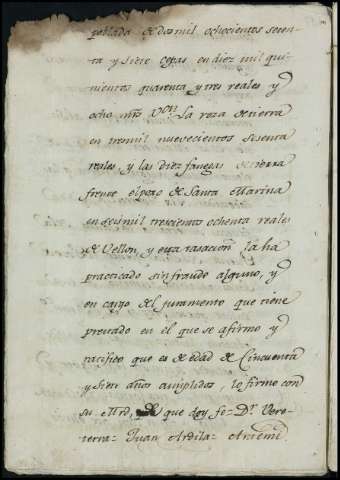 poblada de dos mil ochocientos seten-
ta y siete cepas en diez mil qui-
nientos quarenta y tres reales y
ocho mrs von. La roza de tierra
en tres mil nuevecientos sesenta
reales, y las diez fanegas de tierra
frente el pozo de Santa Marina
en dos mil trescientos ochenta reales
de Vellon, y esta tasacion la ha
practicado sin fraude alguno, y
en cargo del juramento que tiene
prestado en el que se afirmo y
ratifico que es de edad de Cincuenta
y siete años cumplidos, lo firmo con
su Mrd, de que doy fe= Dr. Vere-
terra= Juan Ardila=